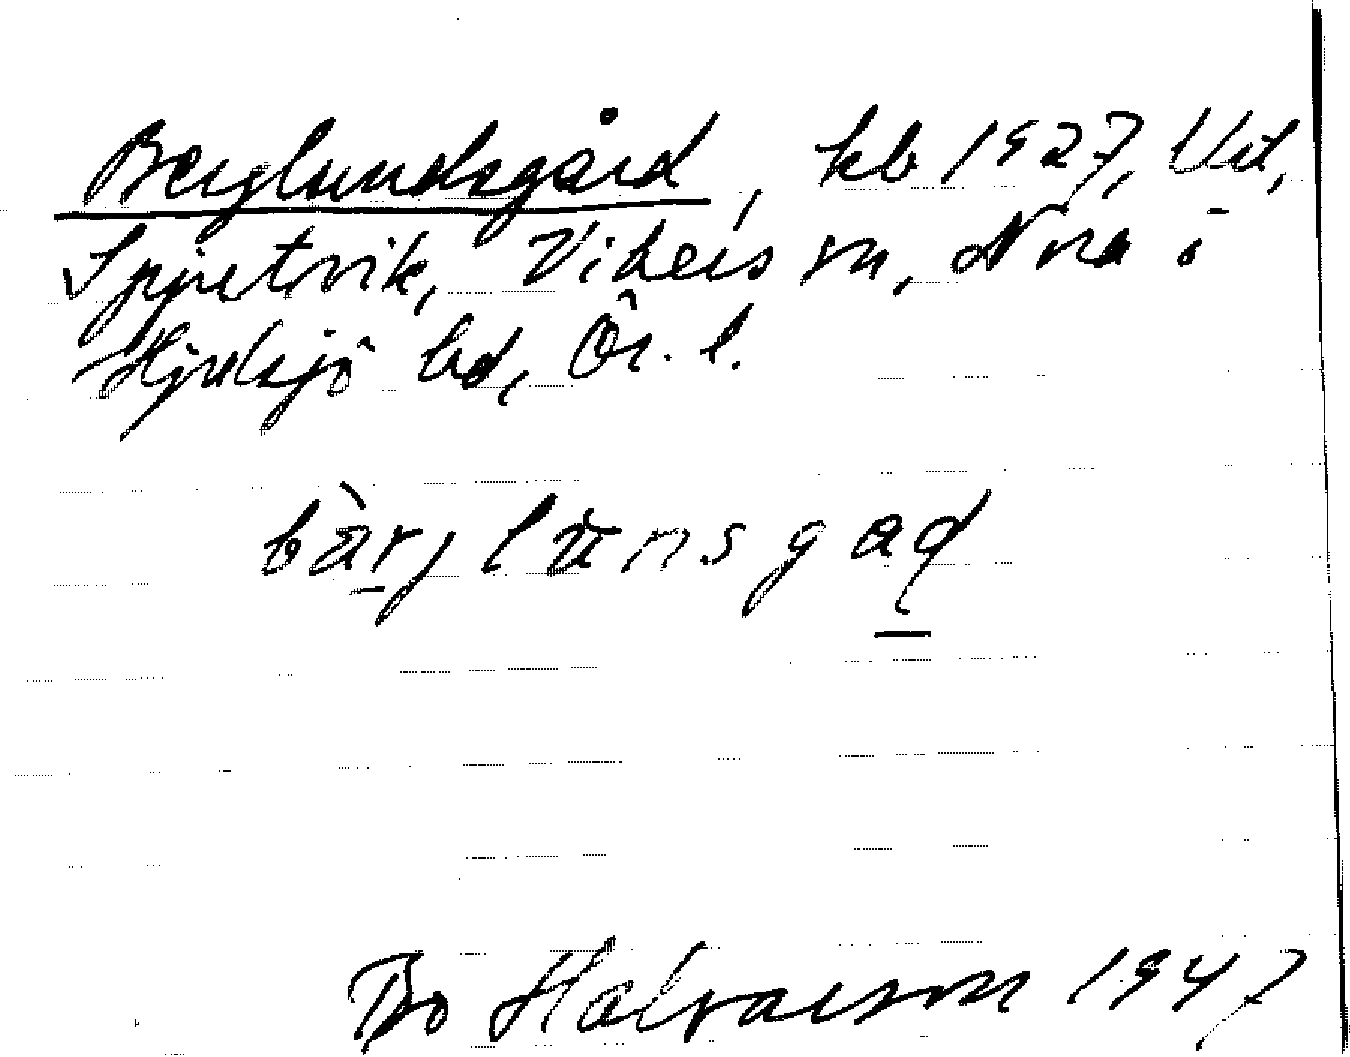 Berglundsgård, kb 1927, Utl,
Spjutvik, Vikers sn, Nora o
Hjulsjö bd, Ör. l.
bàrjlunsgad
Bo Halvarson 1947